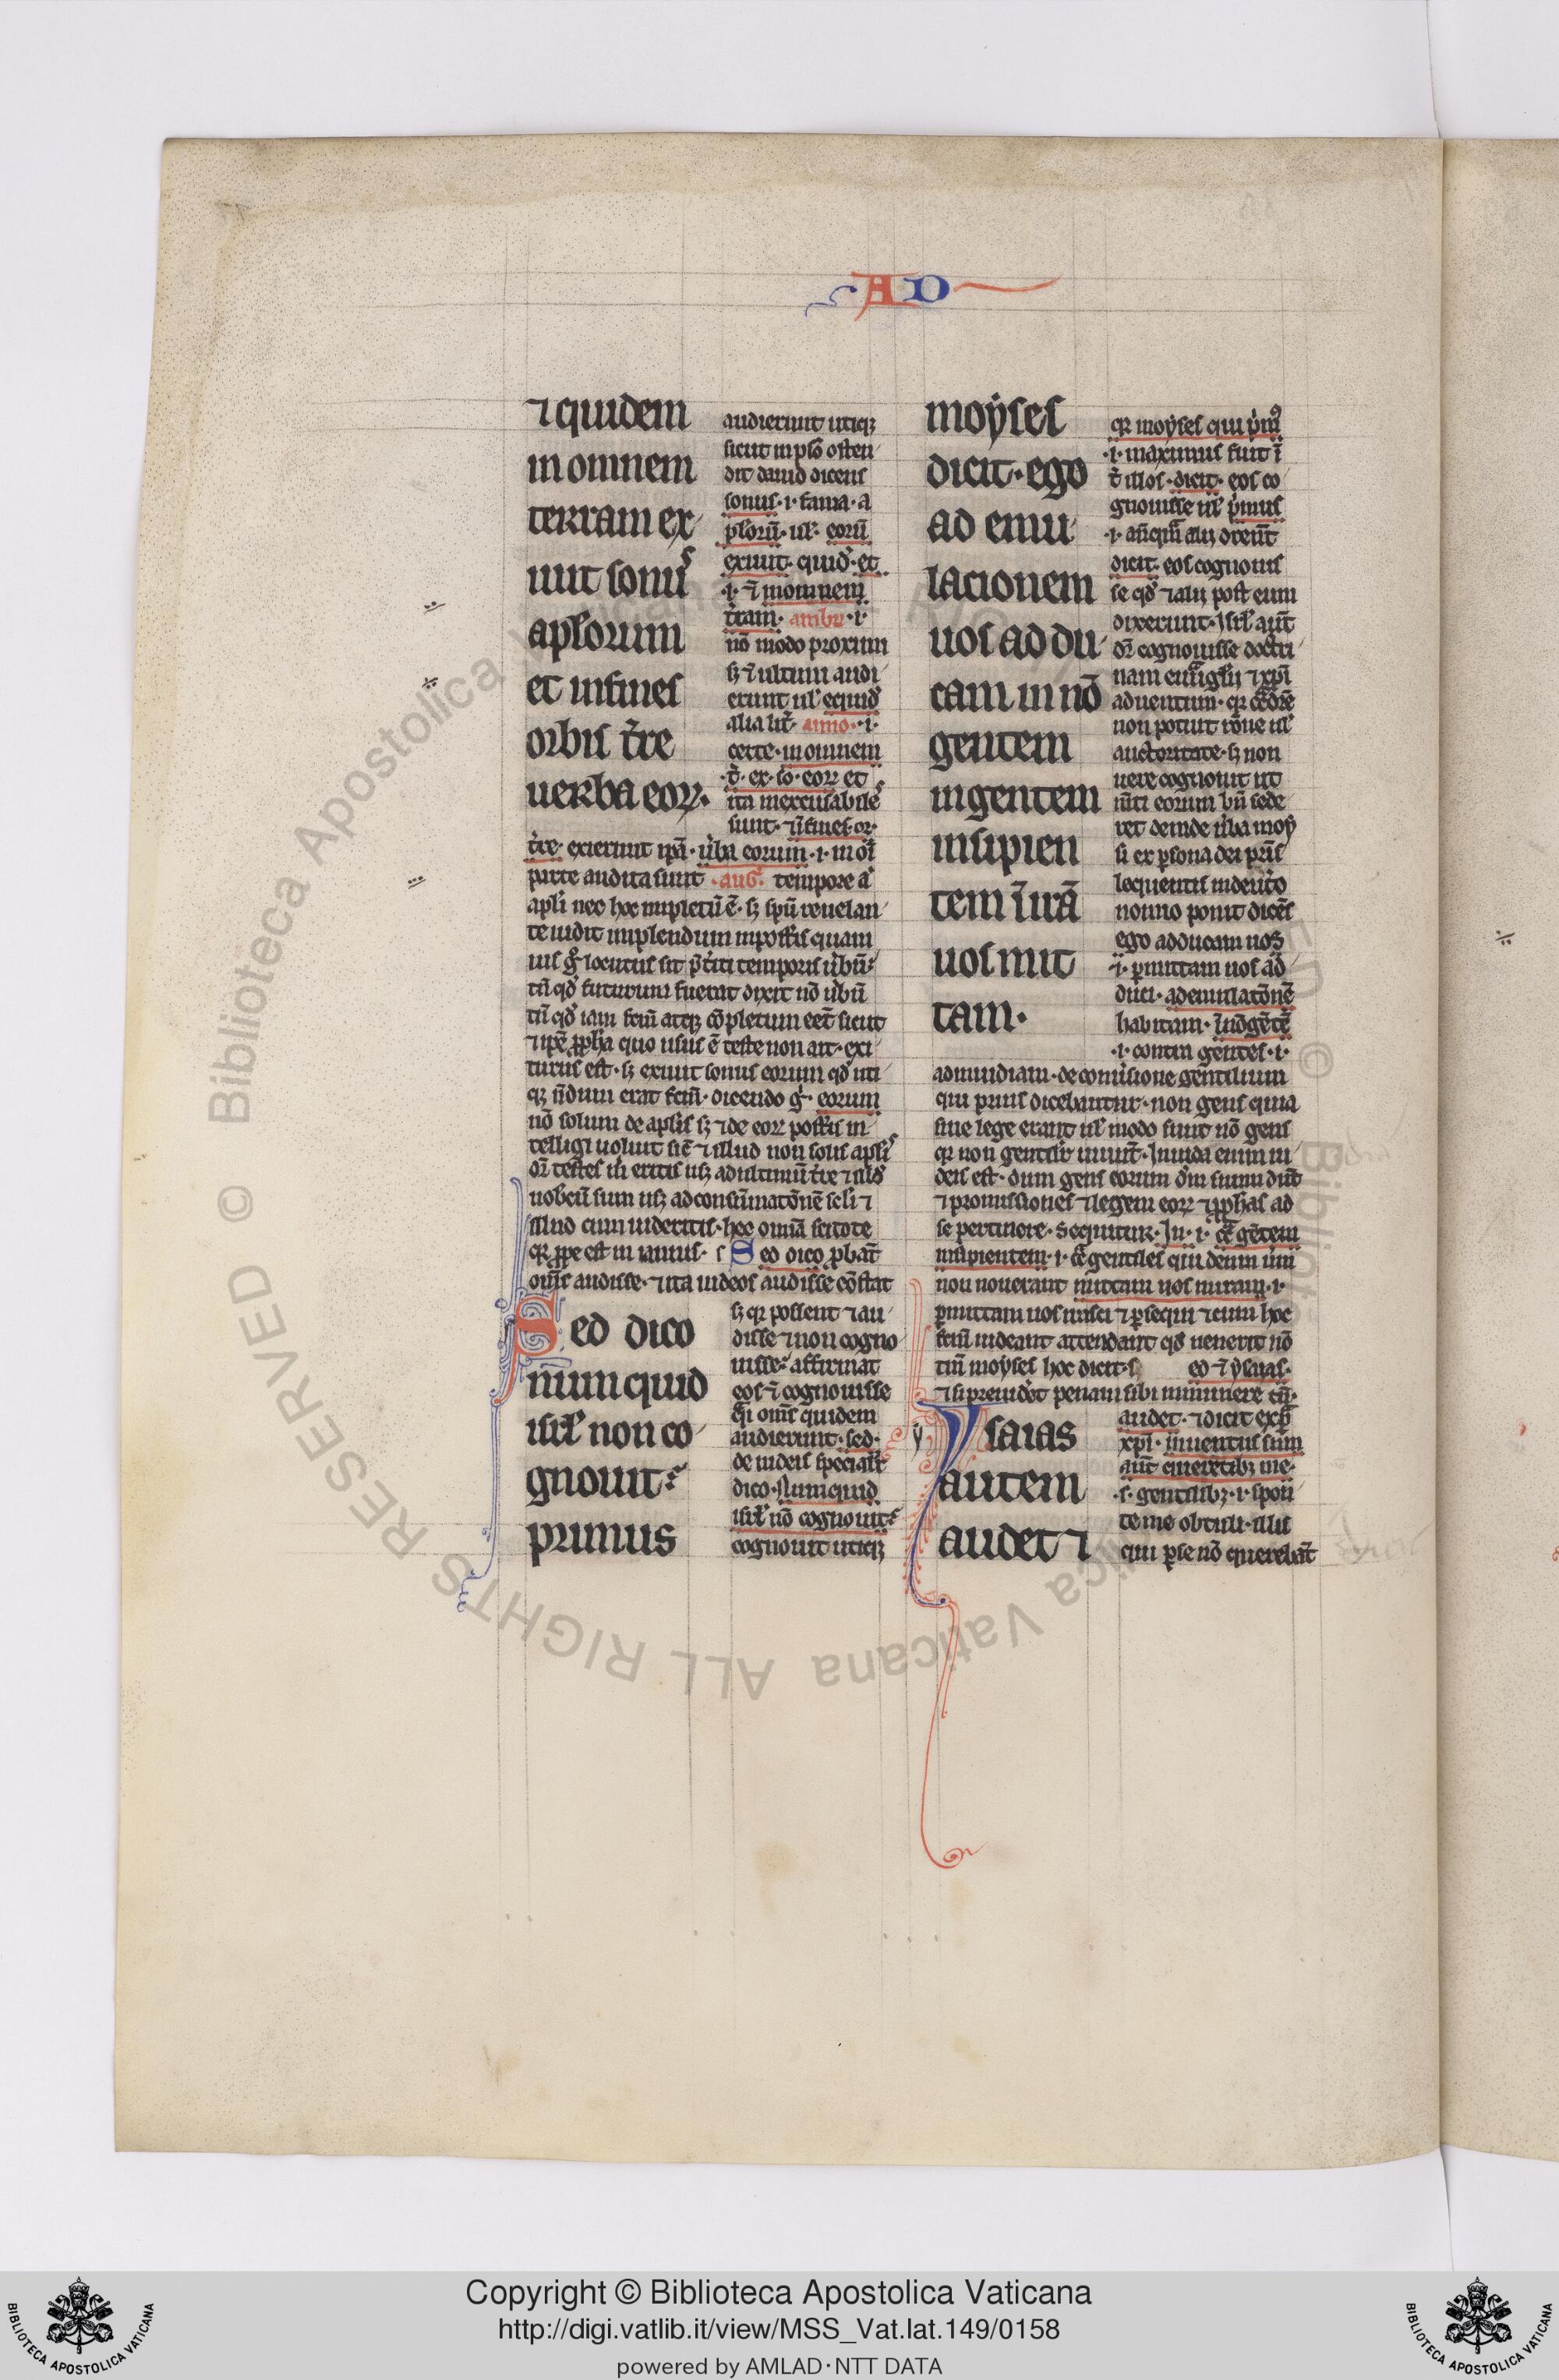 AD
⁊ quidem
in omnem
terram ex
iuit sonus
aplorum
et in fines
orbis tre
uerba eoꝝ.
audierunt utiqꝫ
sicut in pso osten
dit dauid dicens
sonus .i. fama. a
ploꝝ. ul. eoꝝ
exiuit. quid. et
.i. ⁊ in omnem
tram. ambr .i.
nō modo proximi
sꝫ ⁊ ultimi audi
erunt ul equid
alia lit. aimo. .i.
certe. in omnem
t. ex. so. eoꝝ et
ita inexcusabiles
sunt. ⁊ in fines. or.
tre. exierunt ipa. uba eorum .i. in oi
parte audita sunt. aug. tempore a
apli nec hoc impletū ē. sꝫ spū reuelan
te uidit implendum in posteris quam
uis g locutus sit p̄titi temporis ubū
tn qd futurum fuerat dixit nō ubū
tn qd iam fcm atqꝫ cōpletum eet sicut
⁊ ipe ppha quo usus ē teste non ait. exi
turus est. sꝫ exiuit sonus eorum qd uti
qꝫ ndum erat fcm. dicendo g. eorum
nō solum de aplis sꝫ ⁊ de eoꝝ posteris in
telligi uoluit sic ⁊ illud non solis aplis
dr testes m eritis usꝫ ad ultimū tre ⁊ illd
uobcū sum usꝫ ad consūmatōnē scli ⁊
illud cum uideritis. hec omīa scitote
qꝛ ppe est in ianuis. s Sed dico. pbat
oms audisse. ⁊ ita iudeos audisse cōstat
Sed dico
nunquid
isrl non co
gnouit
primus
sꝫ qꝛ possent ⁊ au
disse ⁊ non cogno
uisse affirmat
eos ⁊ cognouisse
qi oms quidem
audierunt. sed.
de iudeis specialr
dico. Nunquid
isrl nō cognouit
cognouit utiqꝫ
moyses
dicit. ego
ad emu
lacionem
uos addu
cam in nō
gentem
in gentem
insipien
tem irā
uos mit
tam.
qꝛ moyses qui pm9
.i. maximus fuit ī
t illos. dicit. eos co
gnouisse ul primus
.i. anqm alij dicent
dicit. eos cognouis
se qd ⁊ alij post eum
dixerunt. Isrl aut
dr cognouisse doctri
nam euuglij ⁊ xpi
aduentum. qꝛ
non potuit rōne ul
auctoritate. sꝫ non
uere cognouit ut
eorum bn sede
ret deinde uba moy
si ex psona dei pris
loquentis in deutro
nomio ponit dicēs
ego adducam uos
.i. pmittam uos ad
duci. ad emulatōnē
habitam. In nō gētē
.i. contra gentes .i.
ad inuidiam. de conuersione gentilium
qui prius dicebantur. non gens quia
sine lege erant ul modo sunt nō gens
qꝛ non gentilir uiuut. Inuida enim iu
deis est. dum gens eorum dm suum dnt
⁊ promissiones ⁊ legem eoꝝ ⁊ pphas ad
se pertinere. Sequitur. In .i. gētem
insipientem .i. gentiles qui deum uiui
non nouerant mittam uos in iram .i.
pmittam uos irasci ⁊ psequi ⁊ cum hoc
fcm uideant attendant qd uenerit nō
tm moyses hoc dicit. s ed ⁊ ysaias.
⁊ si preuidet penam sibi imminere tn.
Ysaias
autem
audet ⁊
audet. ⁊ dicit ex p
xpi. inuentus sum
aut qrentibꝫ me.
.s. gentilibꝫ .i. spon
te me obtuli. illis
qui p se nō querebāt
Copyright © Biblioteca Apostolica Vaticana
http://digi.vatlib.it/view/MSS_Vat.lat.149/0158
powered by AMLAD · NTT DATA
BIBLIOTECA APOSTOLICA VATICANA
BIBLIOTECA APOSTOLICA VATICANA
© Biblioteca Apostolica Vaticana ALL RIGHTS RESERVED